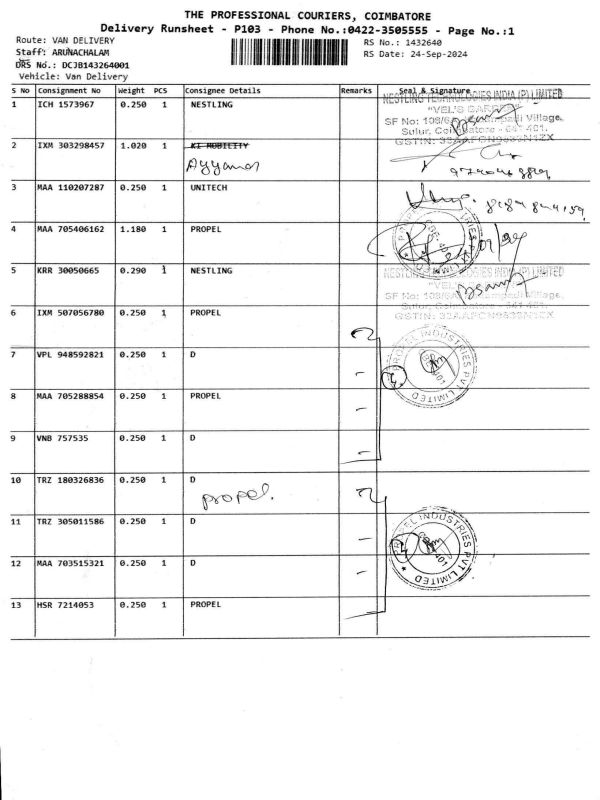 THE PROFESSIONAL COURIERS, COIMBATORE
Delivery Runsheet - P103 - Phone No.:0422-3505555 - Page No.:1
Route: VAN DELIVERY
RS No.: 1432640
Staff: ARUNACHALAM
RS Date: 24-Sep-2024
DRS No.: DCJB143264001
Vehicle: Van Delivery
S No Consignment No Weight PCS Consignee Details Remarks Seal & Signature
1 ICH 1573967 0.250 1 NESTLING
NESTLING TECHNOLOGIES INDIA (P) LIMITED
"VEL'S GARDEN"
Village,
Sulur, Coimbatore - 641 401.
2 IXM 303298457 1.020 1 KI MOBILITY
Ayyanar
3 MAA 110207287 0.250 1 UNITECH
4 MAA 705406162 1.180 1 PROPEL
5 KRR 30050665 0.290 1 NESTLING
NESTLING TECHNOLOGIES INDIA (P) LIMITED
6 IXM 507056780 0.250 1 PROPEL
7 VPL 948592821 0.250 1 D
PROPEL INDUSTRIES PVT LIMITED
8 MAA 705288854 0.250 1 PROPEL
9 VNB 757535 0.250 1 D
10 TRZ 180326836 0.250 1 D
propel.
11 TRZ 305011586 0.250 1 D
PROPEL INDUSTRIES PVT LIMITED
12 MAA 703515321 0.250 1 D
13 HSR 7214053 0.250 1 PROPEL